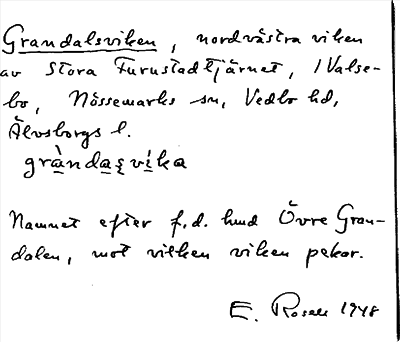 Grandalsviken, nordvästra viken
av Stora Furustadtjärnet, i Valse-
bo, Nössemarks sn, Vedbo hd,
Älvsborgs l.
gràndaꞩvíka
Namnet efter f.d. lund Övre Gran-
dalen, mot vilken viken pekar.
E. Rosell 1948